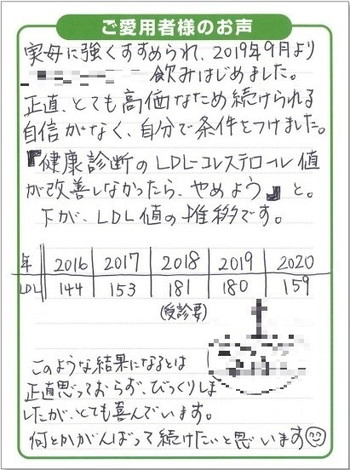 ご愛用者様のお声
実母に強くすすめられ、2019年9月より
飲みはじめました。
正直、とても高価なため続けられる
自信がなく、自分で条件をつけました。
『健康診断のLDL-コレステロール値
が改善しなかったら、やめよう』と。
下が、LDL値の推移です。
年 2016 2017 2018 2019 2020
LDL 144 153 181 180 159
(受診要)
このような結果になるとは
正直思っておらず、びっくりしま
したが、とても喜んでいます。
何とかがんばって続けたいと思います